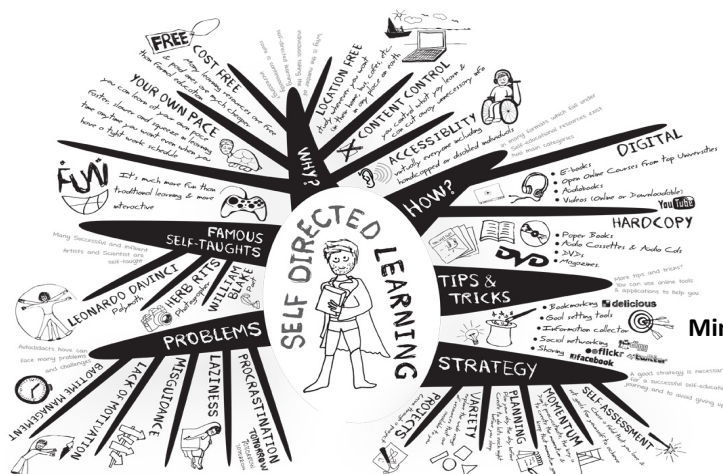 SELF DIRECTED
LEARNING
WHY?
Why is the number of
individuals taking the
self-directed learning
route is continuously
increasing?
FREE
COST FREE
Many learning resources are free
& most are much cheaper
than formal education
YOUR OWN PACE
you can learn at your own pace
faster, slower and squeeze in learning
time anytime you want even when you
have a tight work schedule
FUN
It's much more fun than
traditional learning & more
interactive
LOCATION FREE
study wherever you want
at their home, bus, cafes, etc.
or in any place on earth
CONTENT CONTROL
you control what you learn &
can cut away unnecessary info
ACCESSIBLITY
virtually everyone including
handicapped or disabled individuals
HOW?
Self-educational resources exist
in many formats which fall under
two main categories
DIGITAL
• E-books
• Open Online Courses from top Universities
• Audiobooks
• Videos (Online or Downloadable)
YouTube
HARDCOPY
• Paper Books
• Audio Cassettes & Audio Cds
• DVDs
• Magazines
DVD
TIPS &
TRICKS
More tips and tricks?
You can use online tools
& applications to help you
• Bookmarking delicious
• Goal setting tools
• Information collector
• Social networking
• Sharing
flickr twitter
facebook
Min
STRATEGY
A good strategy is necessary
for a successful self-education
journey and to avoid giving up
SELFASSESSMENT
MOMENTUM
PLANNING
VARIETY
PROJECTS
FAMOUS
SELF-TAUGHTS
Many Successful and influent
Artists and Scientist are
self-taught
LEONARDO DAVINCI
Polymath
HERB RITS
Photographer
WILLIAM
BLAKE
Poet
PROBLEMS
Autodidacts have can
face many problems
and challenges
BADTIME MANAGEMENT
LACK OF MOTIVATION
MISGUIDANCE
LAZINESS
PROCRASTINATION
TOMORROW